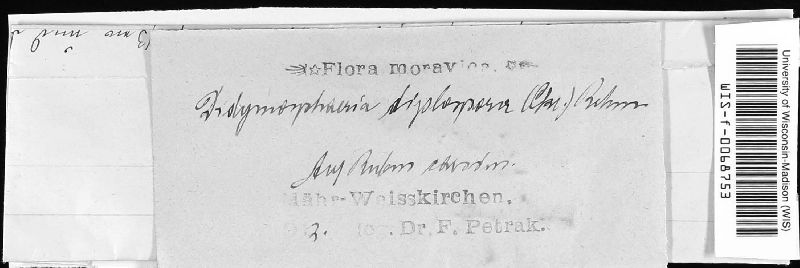 Flora moravica.
Didymosphaeria diplospora (Cke.) Rehm
Auf Rubus
Mähr-Weisskirchen.
2. leg. Dr. F. Petrak.
University of Wisconsin-Madison (WIS)
WIS-f-0068753